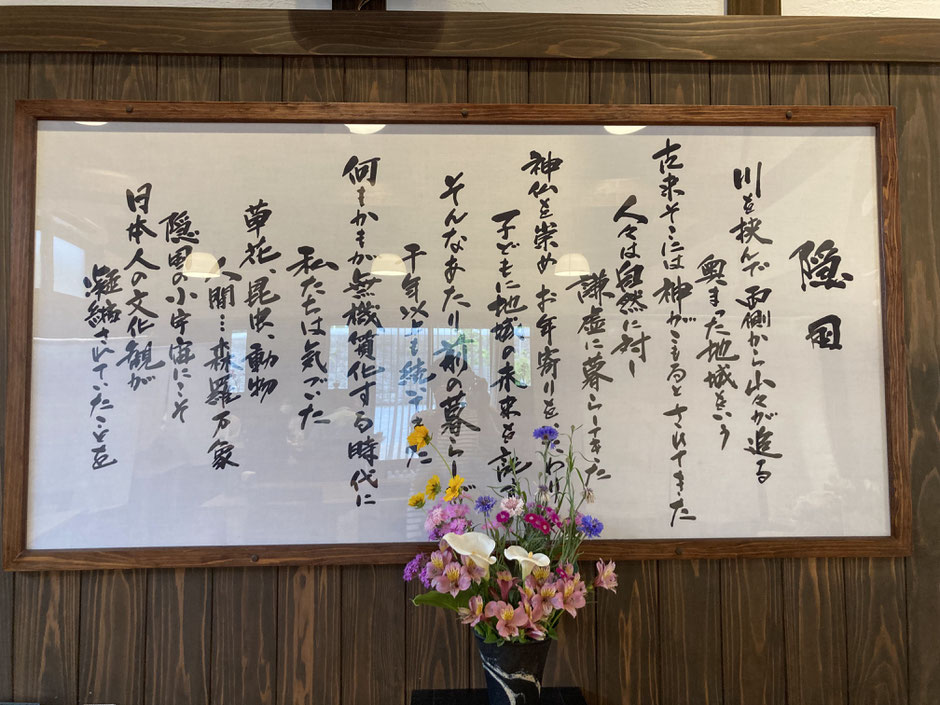 隠国
川を挟んで両側から山々が迫る
奥まった地域をいう
古来そこには神がこもるとされてきた
人々は自然に対し
謙虚に暮らしてきた
神仏を崇めお年寄りをいたわり
子どもに地域の未来を託す
そんなあたり前の暮らしが
千年以上も続いてきた
何もかもが無機質化する時代に
私たちは気づいた
草花、昆虫、動物
人間…森羅万象
隠国の小宇宙にこそ
日本人の文化観が
凝縮されていたことを